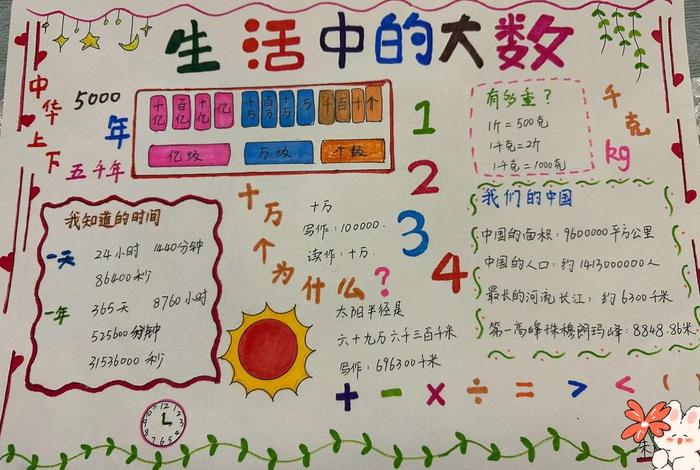 生活中的大数
中华上下
5000
年
五千年
千亿 百亿 十亿 亿 千万 百万 十万 万 千 百 十 个
亿级 万级 个级
1
2
3
4
有多重？
1斤=500克
1千克=2斤
1千克=1000克
千克
kg
我知道的时间
一天
24小时 1440分钟
86400秒
一年
365天 8760小时
525600分钟
31536000秒
十万个为什么?
十万
写作：100000.
读作：十万.
太阳半径是
六十九万六千三百千米
写作：696300千米
我们的中国
中国的面积：9600000平方公里
中国的人口：约1413000000人
最长的河流长江：约6300千米
第一高峰珠穆朗玛峰：8848.86米
+ - × ÷ = > < (
12 1 2 3 4 5 6 7 8 9 10 11